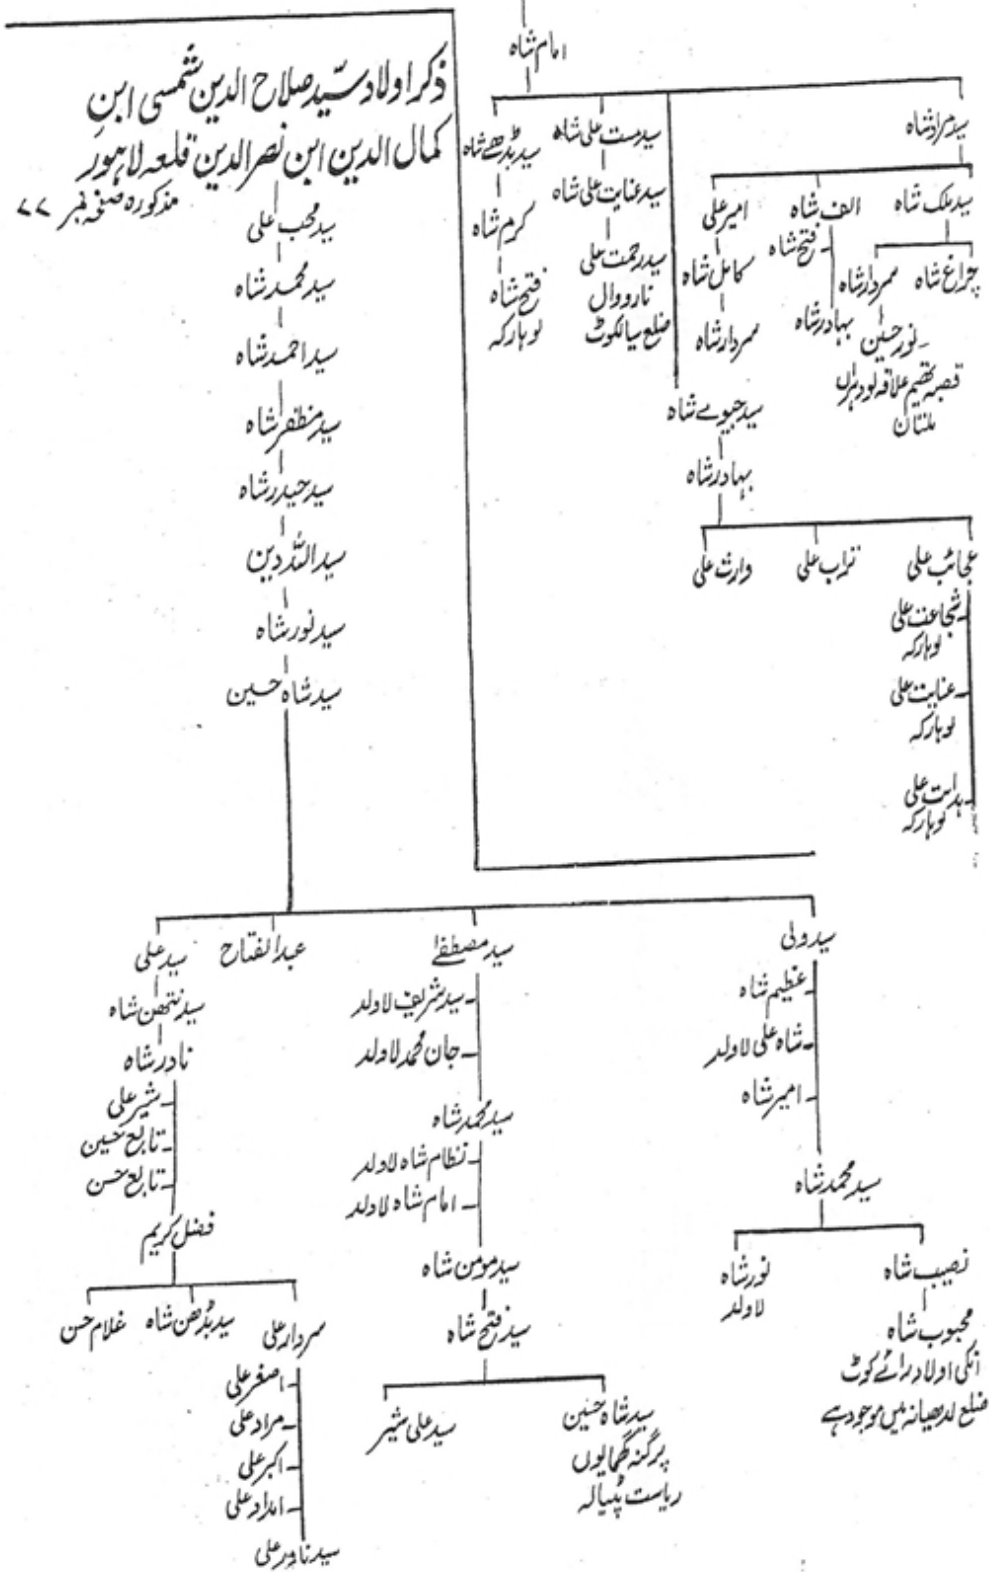 امام شاہ
سید مراد شاہ
سید ملک شاہ
چراغ شاہ
سردار شاہ
نور حسین
قصبہ تقیم علاقہ لودہراں
ملتان
الف شاہ
فتح شاہ
بہادر شاہ
امیر علی
کامل شاہ
سردار شاہ
سید جیوے شاہ
بہادر شاہ
عجائب علی
شجاعت علی
لوہارکہ
عنایت علی
لوہارکہ
ہدایت علی
لوہارکہ
تراب علی
وارث علی
سید مست علی شاہ
سید عنایت علی شاہ
سید رحمت علی
نارووال
ضلع سیالکوٹ
سید بڈھے شاہ
کرم شاہ
فتح شاہ
لوہارکہ
ذکر اولاد سیّد صلاح الدین شمسی ابنِ
کمال الدین ابن نصر الدین قلعہ لاہور
مذکورہ صفحہ نمبر ۷۷
سید محب علی
سید محمد شاہ
سید احمد شاہ
سید مظفر شاہ
سید حیدر شاہ
سید اللہ دین
سید نور شاہ
سید شاہ حسین
سید ولی
عظیم شاہ
شاہ علی لاولد
امیر شاہ
سید محمد شاہ
نصیب شاہ
محبوب شاہ
انکی اولاد رائے کوٹ
ضلع لدھیانہ میں موجود ہے
نور شاہ
لاولد
سید مصطفےٰ
سید شریف لاولد
جان محمد لاولد
سید محمد شاہ
نظام شاہ لاولد
امام شاہ لاولد
سید مومن شاہ
سید فتح شاہ
سید شاہ حسین
پرگنہ گھمایوں
ریاست پٹیالہ
سید علی شیر
عبد الفتاح
سید علی
سید نتھن شاہ
نادر شاہ
شیر علی
تابع حسین
تابع حسن
فضل کریم
سردار علی
اصغر علی
مراد علی
اکبر علی
امداد علی
سید نادر علی
سید بڈھن شاہ
غلام حسن